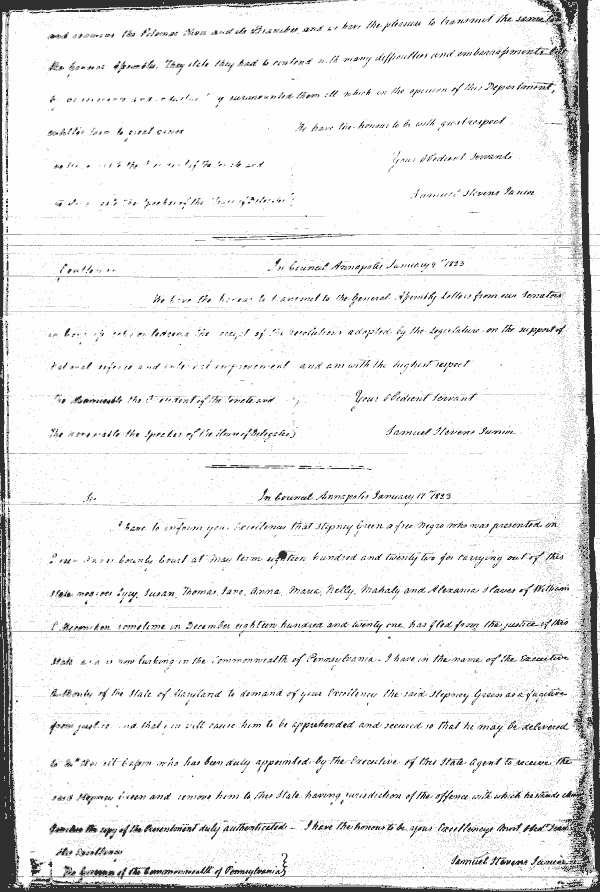 and examine the Potomac River and its Branches, and we have the pleasure to transmit the same to
the General Assembly. They state they had to contend with many difficulties and embarrassments but
surmounted them all which in the opinion of this Department,
entitles them to great
We have the honour to be with great respect
Your Obedient Servants
Samuel Stevens Junior
the Speaker of the House of Delegates
Gentlemen
In Council Annapolis January 9th 1823
We have the honour to transmit to the General Assembly Letters from our Senators
in Congress acknowledging the receipt of the resolutions adopted by the Legislature, on the support of
National and internal improvement and am with the highest respect
The Honourable the President of the Senate and
Your Obedient Servant
The honorable the Speaker of the House of Delegates
Samuel Stevens Junior
Sir
In Council Annapolis January 17th 1823
I have to inform your Excellency that Stepney Green a free Negro who was presented in
County Court at May term eighteen hundred and twenty two for carrying out of this
State negroes Lucy, Susan, Thomas, Jane, Anna, Maria, Nelly, Mahaly and Alexania Slaves of William
sometime in December eighteen hundred and twenty one, has fled from the justice of this
State and is now lurking in the Commonwealth of Pennsylvania. I have in the name of the Executive
Authority of the State of Maryland to demand of your Excellency the said Stepney Green as a fugitive
from justice and that you will cause him to be apprehended and secured so that he may be delivered
to who has been duly appointed by the Executive of this State agent to receive the
said Stepney Green and remove him to this State having jurisdiction of the offence with which he stands
the copy of the Presentment duly authenticated - I have the honour to be your Excellencys Most Obed.
His Excellency
The Governor of the Commonwealth of Pennsylvania
Samuel Stevens Junior